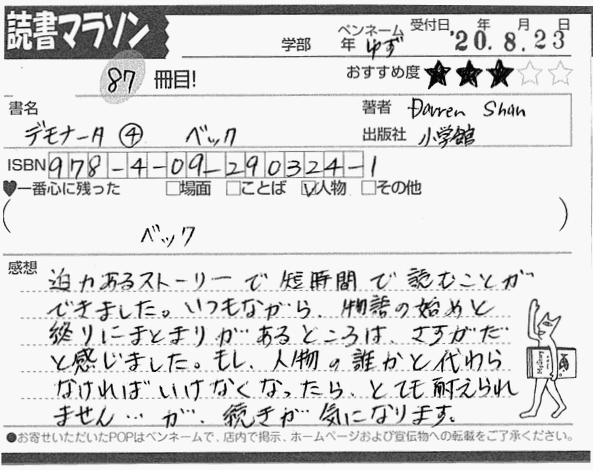 読書マラソン
学部 年 ペンネーム ゆず 受付日 年 月 日 '20.8.23
87 冊目! おすすめ度 ★★★☆☆
書名 デモナータ ④ ベック
著者 Darren Shan
出版社 小学館
ISBN 978-4-09-290324-1
♥一番心に残った □場面 □ことば ☑人物 □その他
( ベック )
感想 迫力あるストーリーで短時間で読むことが
できました。いつもながら、物語の始めと
終りにまとまりがあるところは、さすがだ
と感じました。もし、人物の誰かと代わら
なければいけなくなったら、とても耐えられ
ません…が、続きが気になります。
●お寄せいただいたPOPはペンネームで、店内で掲示、ホームページおよび宣伝物への転載をご了承ください。